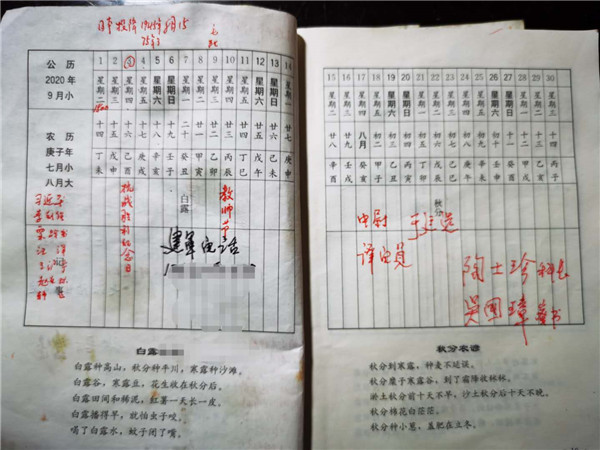 日本投降1945年8月15
75年
公历 2020年 9月小
1 2 3 4 5 6 7 8 9 10 11 12 13 14
星期二 星期三 星期四 星期五 星期六 星期日 星期一 星期二 星期三 星期四 星期五 星期六 星期日 星期一
农历 庚子年 七月小 八月大
十四 十五 十六 十七 十八 十九 二十 廿一 廿二 廿三 廿四 廿五 廿六 廿七
丁未 戊申 己酉 庚戌 辛亥 壬子 癸丑 甲寅 乙卯 丙辰 丁巳 戊午 己未 庚申
白露
抗战胜利纪念日
教师节
建军电话
白露
白露种高山，秋分种平川，寒露种沙滩。
白露谷，寒露豆，花生收在秋分后。
白露田间和稀泥，红薯一天长一皮。
白露播得早，就怕虫子咬。
喝了白露水，蚊子闭了嘴。
15 16 17 18 19 20 21 22 23 24 25 26 27 28 29 30
星期二 星期三 星期四 星期五 星期六 星期日 星期一 星期二 星期三 星期四 星期五 星期六 星期日 星期一 星期二 星期三
廿八 廿九 八月 初二 初三 初四 初五 初六 初七 初八 初九 初十 十一 十二 十三 十四
辛酉 壬戌 癸亥 甲子 乙丑 丙寅 丁卯 戊辰 己巳 庚午 辛未 壬申 癸酉 甲戌 乙亥 丙子
秋分
中尉
译电員
陶士珍科长
吴国璋秘书
秋分农谚
秋分到寒露，种麦不延误。
秋分糜子寒露谷，到了霜降收秫秫。
淤土秋分前十天不早，沙土秋分后十天不晚。
秋分棉花白茫茫。
秋分种小葱，盖肥在立冬。